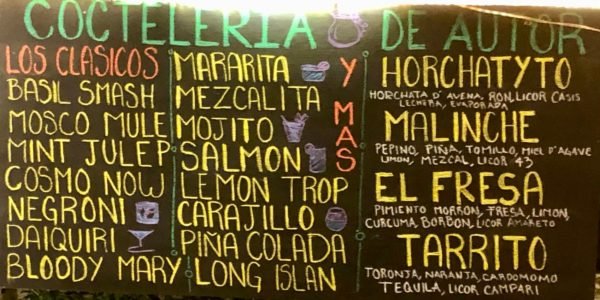 COCTELERIA DE AUTOR
LOS CLASICOS
BASIL SMASH
MOSCO MULE
MINT JULEP
COSMO NOW
NEGRONI
DAIQUIRI
BLOODY MARY
MARARITA
MEZCALITA
MOJITO
SALMON
LEMON TROP
CARAJILLO
PIÑA COLADA
LONG ISLAN
Y MAS
HORCHATYTO
HORCHATA D' AVENA, RON, LICOR CASIS
LECHERA, EVAPORADA
MALINCHE
PEPINO, PIÑA, TOMILLO, MIEL D'AGAVE
LIMON, MEZCAL, LICOR 43
EL FRESA
PIMIENTO MORRON, FRESA, LIMON,
CURCUMA, BORBON, LICOR AMARETO
TARRITO
TORONJA, NARANJA, CARDOMOMO
TEQUILA, LICOR CAMPARI